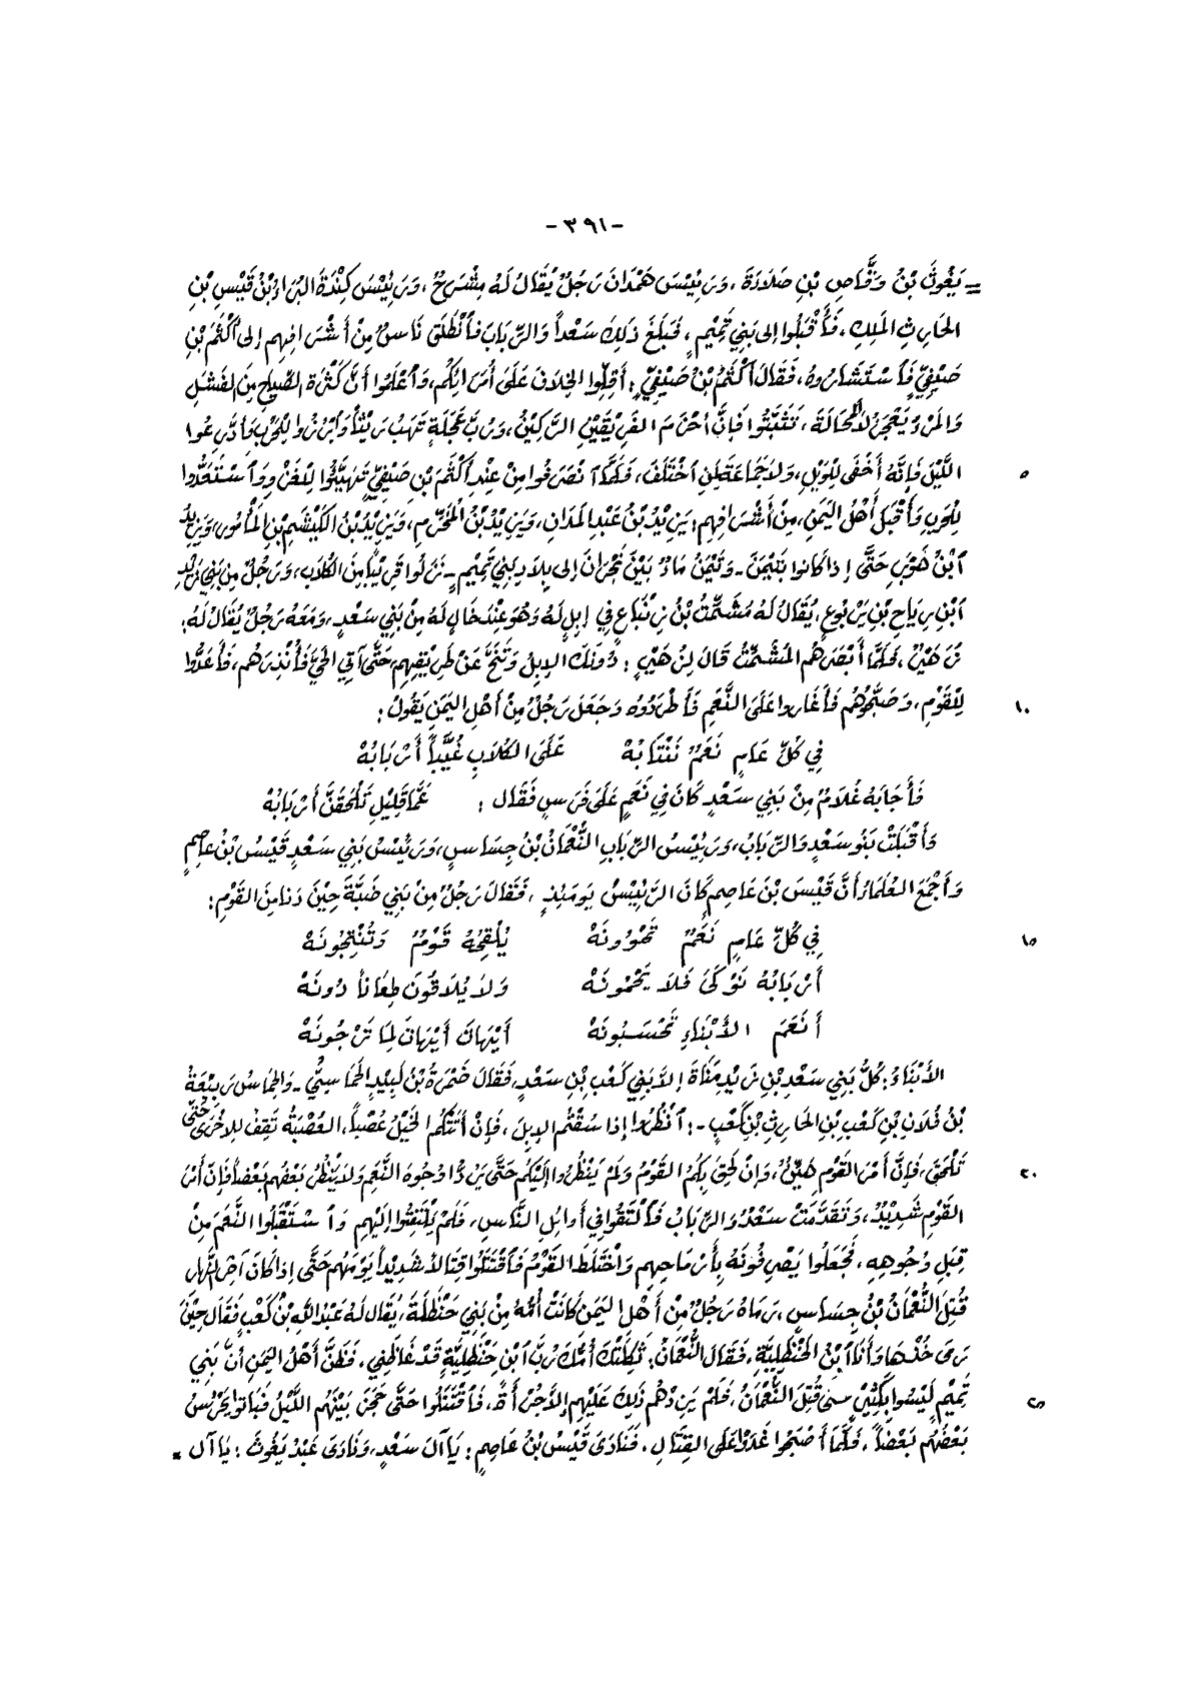 -٣٩١-
= يَغُوثَ بْنُ وَقَّاصِ بْنِ صَلَاءَةَ ، وَرَئِيْسَ هَمْدَانَ رَجُلٌ يُقَالُ لَهُ مِشْرَحٌ ، وَرَئِيْسَ كِنْدَةَ البَرَاءُ بْنُ قَيْسِ بْنِ
الحَارِثِ المَلِكِ ، فَأَقْبَلُوا إلى بَنِي تَمِيْمٍ ، فَبَلَغَ ذَلِكَ سَعْداً وَالرِّبَابَ فَانْطَلَقَ نَاسٌ مِنْ أَشْرَافِهِم إلى أَكْثَمَ بْنِ
صَيْفِيٍّ فَاسْتَشَارُوهُ ، فَقَالَ أَكْثَمُ بْنُ صَيْفِيٍّ : أَقِلُّوا الخِلَافَ عَلَى أُمَرَائِكُم ، وَاعْلَمُوا أَنَّ كَثْرَةَ الصِّيَاحِ مِنَ الفَشَلِ
وَالمَرْءُ يَعْجَزُ لَا المَحَالَةَ ، تَثَبَّتُوا فَإِنَّ أَحْزَمَ الفَرِيْقَيْنِ الرَّكِيْنُ ، وَرُبَّ عَجَلَةٍ تَهَبُ رَيْثاً وَابْرُزُوا لِلْحَرْبِ وَادَّرِعُوا
اللَّيْلَ فَإِنَّهُ أَخْفَى لِلْوَيْلِ ، وَلَا جَمَاعَةَ لِمَنِ اخْتَلَفَ ، فَلَمَّا انْصَرَفُوا مِنْ عِنْدِ أَكْثَمَ بْنِ صَيْفِيٍّ تَهَيَّئُوا لِلْغَزْوِ وَاسْتَعَدُّوا ٥
لِلْحَرْبِ وَأَقْبَلَ أَهْلُ اليَمَنِ ، مِنْ أَشْرَافِهِم : يَزِيْدُ بْنُ عَبْدِ المَدَانِ ، وَيَزِيْدُ بْنُ المُخَرِّمِ ، وَيَزِيْدُ بْنُ الكَيْشَمِ بْنِ المَأْمُورِ ، وَيَزِيْدُ
ابْنُ هَوْبَرٍ حَتَّى إذا كانوا بِتَيْمَنَ - وَتَيْمَنُ مَاءٌ بَيْنَ نَجْرَانَ إلى بِلَادِ بَنِي تَمِيْمٍ - نَزَلُوا قَرِيْباً مِنَ الكُلَابِ ، وَرَجُلٌ مِنْ بَنِي زَيْدِ
ابْنِ رِيَاحِ بْنِ يَرْبُوعٍ ، يُقَالُ لَهُ مُشَمِّتُ بْنُ زِنْبَاعٍ فِي إبِلٍ لَهُ وَهْوَ عِنْدَ خَالٍ لَهُ مِنْ بَنِي سَعْدٍ ، وَمَعَهُ رَجُلٌ يُقَالُ لَهُ :
زُهَيْرٌ ، فَلَمَّا أَبْصَرَهُم المُشَمِّتُ قَالَ لِزُهَيْرٍ : دُونَكَ الإبِلُ وَتَنَحَّ عَنْ طَرِيْقِهِم حَتَّى آتِي الحَيَّ فَأُنْذِرَهُم ، فَأَعَدُّوا
لِلْقَوْمِ ، وَصَبَّحُوهُم فَأَغَارُوا عَلَى النَّعَمِ فَأَطْرَدُوهُ وَجَعَلَ رَجُلٌ مِنْ أَهْلِ اليَمَنِ يَقُولُ : ١٠
فِي كُلِّ عَامٍ نَعَمٌ نَنْتَابُهْ عَلَى الكُلَابِ غُيَّباً أَرْبَابُهْ
فَأَجَابَهُ غُلَامٌ مِنْ بَنِي سَعْدٍ كَانَ فِي نَعَمٍ عَلَى فَرَسٍ فَقَال : عَمَّا قَلِيْلٍ تَلْحَقَنْ أَرْبَابُهْ
وَأَقْبَلَتْ بَنُو سَعْدٍ وَالرِّبَابُ ، وَرَئِيْسُ الرِّبَابِ النُّعْمَانُ بْنُ جِسَاسٍ ، وَرَئِيْسُ بَنِي سَعْدٍ قَيْسُ بْنُ عَاصِمٍ
وَأَجْمَعَ العُلَمَاءُ أَنَّ قَيْسَ بْنَ عَاصِمٍ كَانَ الرَّئِيْسُ يَوْمَئِذٍ ، فَقَالَ رَجُلٌ مِنْ بَنِي ضَبَّةَ حِيْنَ دَنا مِنَ القَوْمِ :
فِي كُلِّ عَامٍ نَعَمٌ تَحْوُونَهْ يُلْقِحُهُ قَوْمٌ وَتُنْتِجُونَهْ ١٥
أَرْبَابُهُ نَوْكَى فَلَا يَحْمُونَهْ وَلَا يُلَاقُونَ طِعَاناً دُونَهْ
أَنَعَمَ الأَبْنَاءِ تَحْسَبُونَهْ أَيْهَاتَ أَيْهَاتَ لِمَا تَرْجُونَهْ
الأَبْنَاءُ : كُلُّ بَنِي سَعْدِ بْنِ زَيْدِ مَنَاةَ إلَّا بَنِي كَعْبِ بْنِ سَعْدٍ ، فَقَالَ ضَمْرَةُ بْنُ لَبِيْدٍ الحَمَاسِيُّ - وَالحِمَاسُ رَبِيْعَةُ
بْنُ فُلَانِ بْنِ كَعْبِ بْنِ الحَارِثِ بْنِ كَعْبٍ - : انْظُرُوا إذا سُقْتُم الإبِلَ ، فَإنْ أَتَتْكُم الخَيْلُ عُصَباً ، العُصْبَةُ تَقِفُ للأُخْرَى حَتَّى
تَلْحَقَ ، فَإنَّ أَمْرَ القَوْمِ هَيِّنٌ ، وَإنْ لَحِقَ بِكُمُ القَوْمُ وَلَمْ يَنْظُرُوا إلَيْكُم حَتَّى يَرُدُّوا وُجُوهَ النَّعَمِ وَلَا يَنْتَظِرُ بَعْضُهُم بَعْضاً فَإنَّ أَمْرَ ٢٠
القَوْمِ شَدِيْدٌ ، وَتَقَدَّمَتْ سَعْدٌ وَالرِّبَابُ فَالْتَقَوْا فِي أَوَائِلِ النَّاسِ ، فَلَمْ يَلْتَفِتُوا إلَيْهِمِ وَاسْتَقْبَلُوا النَّعَمَ مِنْ
قِبَلِ وُجُوهِهِ ، فَجَعَلُوا يَصْرِفُونَهُ بِأَرْمَاحِهِم وَاخْتَلَطَ القَوْمُ فَاقْتَتَلُوا قِتَالاً شَدِيْداً يَوْمَهُم حَتَّى إذا كَانَ آخِرُ النَّهَارِ
قُتِلَ النُّعْمَانُ بْنُ جِسَاسٍ ، رَمَاهُ رَجُلٌ مِنْ أَهْلِ اليَمَنِ كَانَتْ أُمُّهُ مِنْ بَنِي حَنْظَلَةَ ، يُقَالُ لَهُ عَبْدُ اللهِ بْنُ كَعْبٍ فَقَالَ حِيْنَ
رَمَى خُذْهَا وَأَنَا ابْنُ الحَنْظَلِيَّةِ ، فَقَالَ النُّعْمَانُ : ثَكِلَتْكَ أُمُّكَ رُبَّ ابْنِ حَنْظَلِيَّةٍ قَدْ غَاظَنِي ، فَظَنَّ أَهْلُ اليَمَنِ أَنَّ بَنِي
تَمِيْمٍ لَيْسُوا بِكَثِيْرٍ حَتَّى قُتِلَ النُّعْمَانُ ، فَلَمْ يَزِدْهُم ذَلِكَ عَلَيْهِم إلَّا جُرْأَةً ، فَاقْتَتَلُوا حَتَّى حَجَزَ بَيْنَهُم اللَّيْلُ فَبَاتُوا يَحْرُسُ ٢٥
بَعْضُهُم بَعْضاً ، فَلَمَّا أَصْبَحُوا غَدَوْا عَلَى القِتَالِ ، فَنَادَى قَيْسُ بْنُ عَاصِمٍ : يَا آلَ سَعْدٍ ، وَنَادَى عَبْدُ يَغُوثَ : يَا آل =